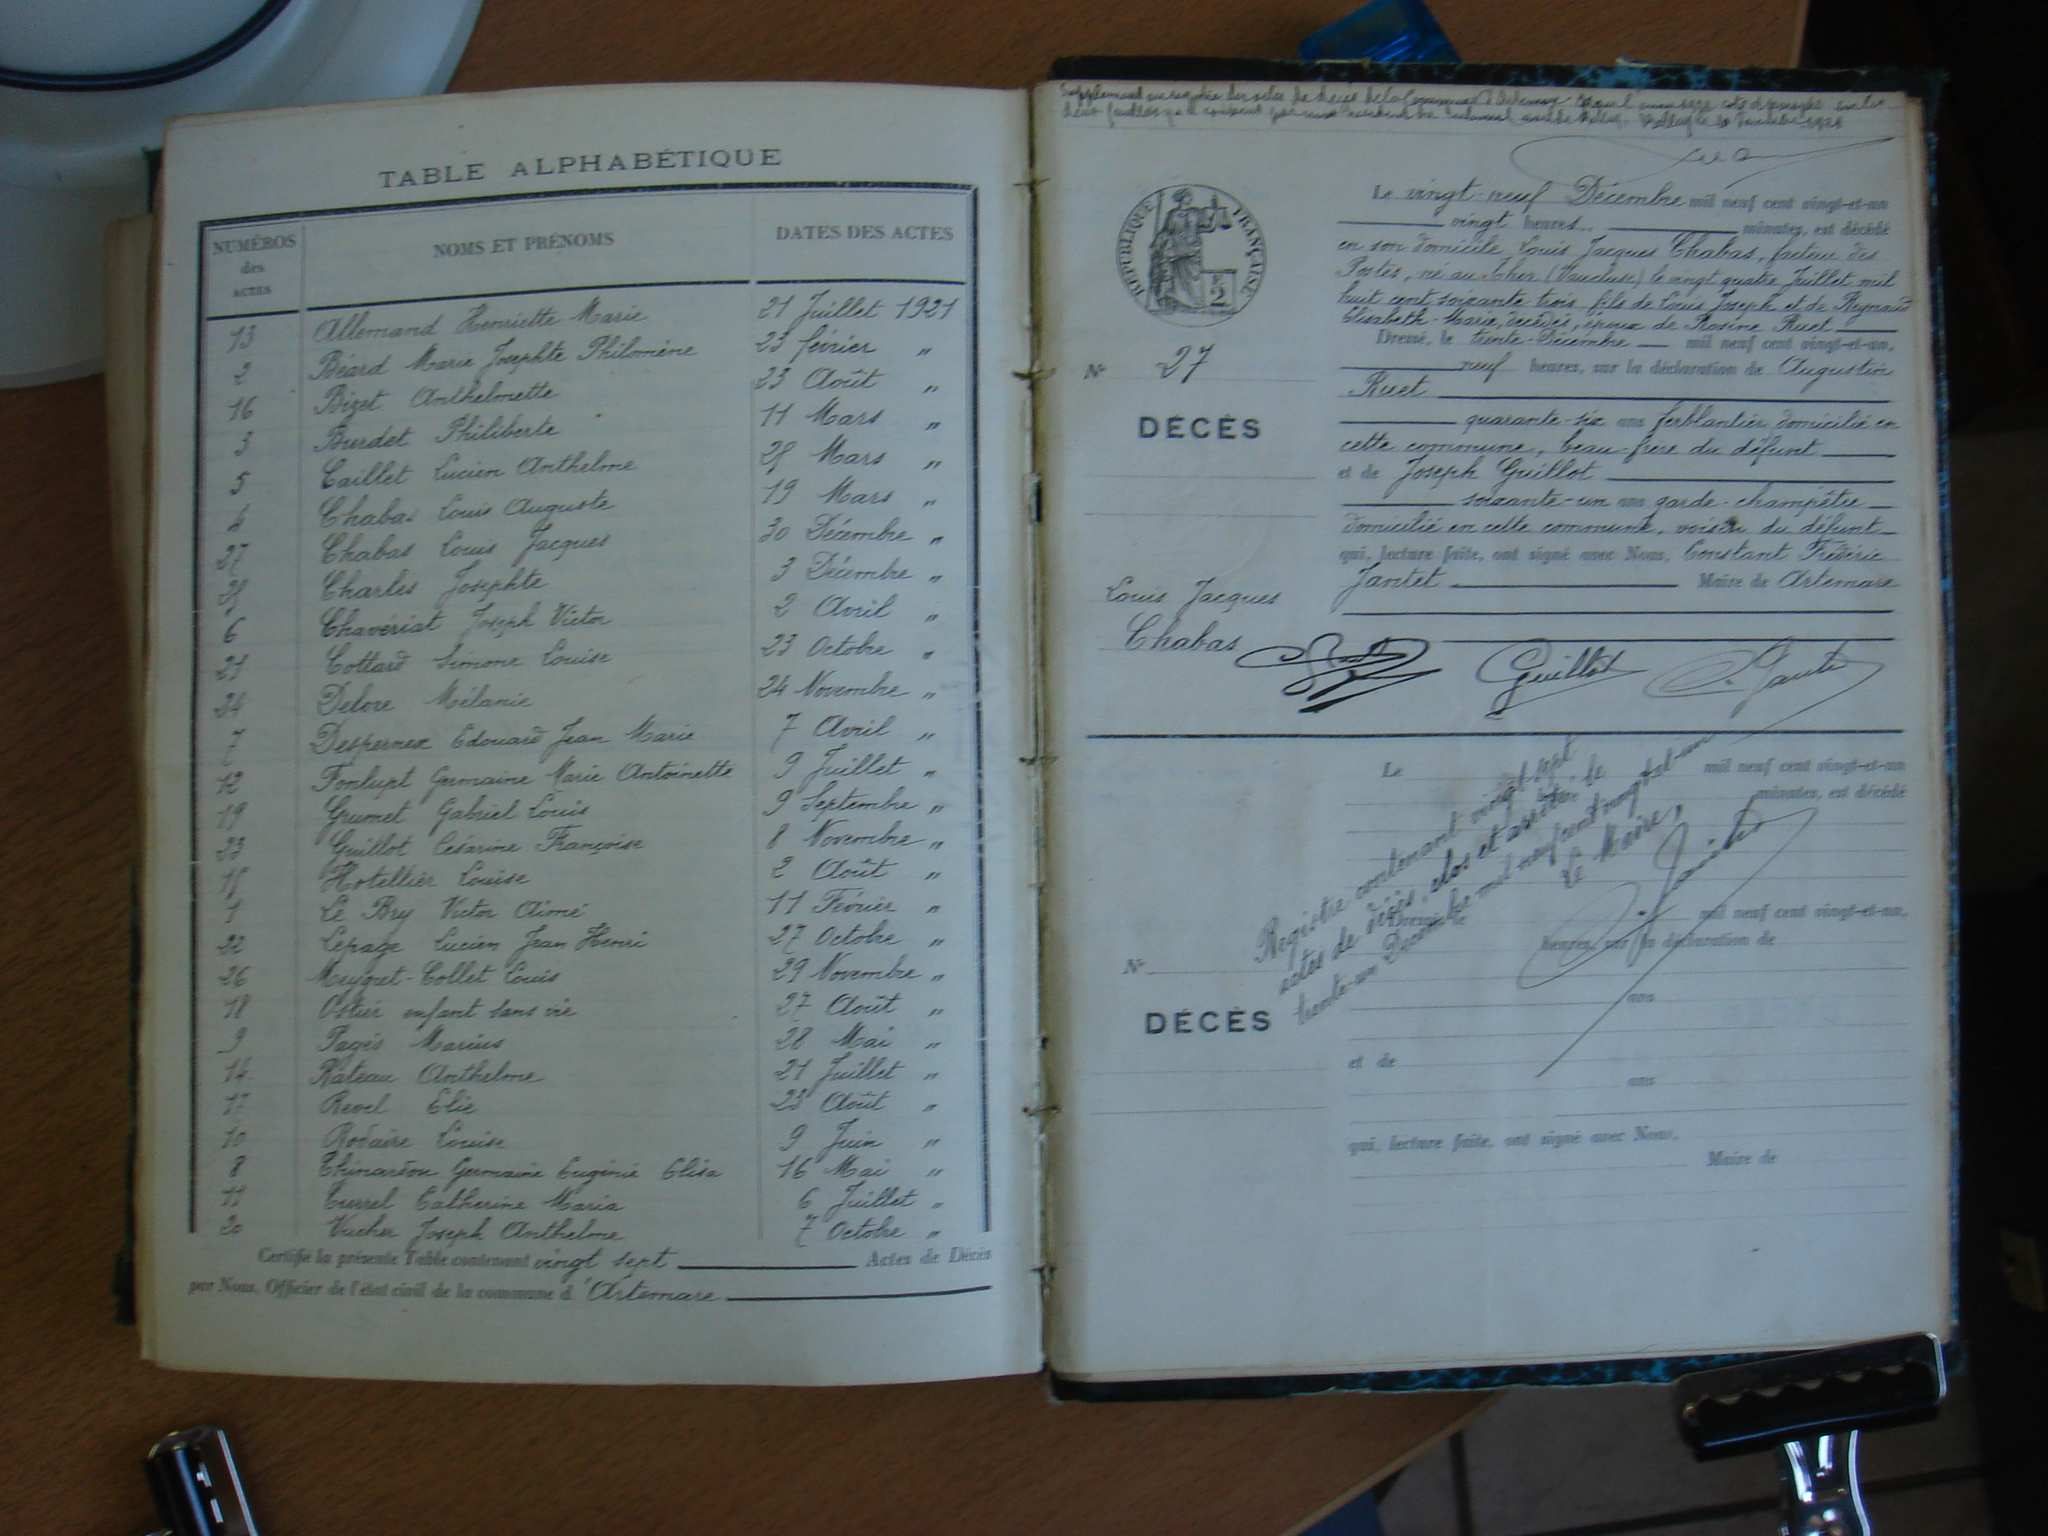 TABLE ALPHABÉTIQUE
NUMÉROS des ACTES NOMS ET PRÉNOMS DATES DES ACTES
13 Allemand Henriette Marie 21 Juillet 1921
2 Béard Marie Josephte Philomène 23 février "
16 Bizet Anthelmette 23 Août "
3 Burdet Philiberte 11 Mars "
5 Caillet Lucien Anthelme Mars "
4 Chabas Louis Auguste 19 Mars "
27 Chabas Louis Jacques 30 Décembre "
Charles Josephte 3 Décembre "
6 Chavériat Joseph Victor 2 Avril "
21 Cottard Simone Louise 23 Octobre "
24 Delore Mélanie 24 Novembre "
7 Despernex Edouard Jean Marie 7 Avril "
12 Fonlupt Germaine Marie Antoinette 9 Juillet "
19 Grumet Gabriel Louis 9 Septembre "
23 Guillot Césarine Françoise 8 Novembre "
15 Hotellier Louise 2 Août "
1 Le Bry Victor Aimé 11 Février "
22 Lepage Lucien Jean Henri 27 Octobre "
26 Meygret-Collet Louis 29 Novembre "
18 Ostier enfant sans vie 27 Août "
9 Pagès Marius 28 Mai "
14 Rateau Anthelme 21 Juillet "
17 Revel Elie 23 Août "
10 Rodaire Louise 9 Juin "
8 Germaine Eugénie Elisa 16 Mai "
11 Currel Catherine Maria 6 Juillet "
20 Vucher Joseph Anthelme 7 Octobre "
Certifié la présente Table contenant vingt sept Actes de Décès
par Nous, Officier de l'état civil de la commune d'Artemare
RÉPUBLIQUE FRANÇAISE
2
Le vingt-neuf Décembre mil neuf cent vingt-et-un
vingt heures, minutes, est décédé
en son domicile Louis Jacques Chabas, facteur des
Postes, né au Thor (Vaucluse) le vingt quatre Juillet mil
huit cent soixante trois, fils de Louis Joseph et de Reynaud
Elisabeth-Marie, décédés, époux de Rosine Ruet
Dressé, le trente-Décembre mil neuf cent vingt-et-un,
neuf heures, sur la déclaration de Augustin
Ruet
quarante-six ans ferblantier domicilié en
cette commune, beau-frère du défunt
et de Joseph Guillot
soixante-un ans garde-champêtre
domicilié en cette commune, voisin du défunt
qui, lecture faite, ont signé avec Nous, Constant Frédéric
Jantet Maire de Artemare
N° 27
DÉCÈS
Louis Jacques
Chabas
Guillot
Le mil neuf cent vingt-et-un
heures minutes, est décédé
Dressé, le mil neuf cent vingt-et-un,
heures, sur la déclaration de
ans
et de
ans
qui, lecture faite, ont signé avec Nous,
Maire de
N°
DÉCÈS
Registre contenant vingt sept
actes de décès, clos et arrêté le
trente-un Décembre mil neuf cent vingt-et-un
Le Maire,